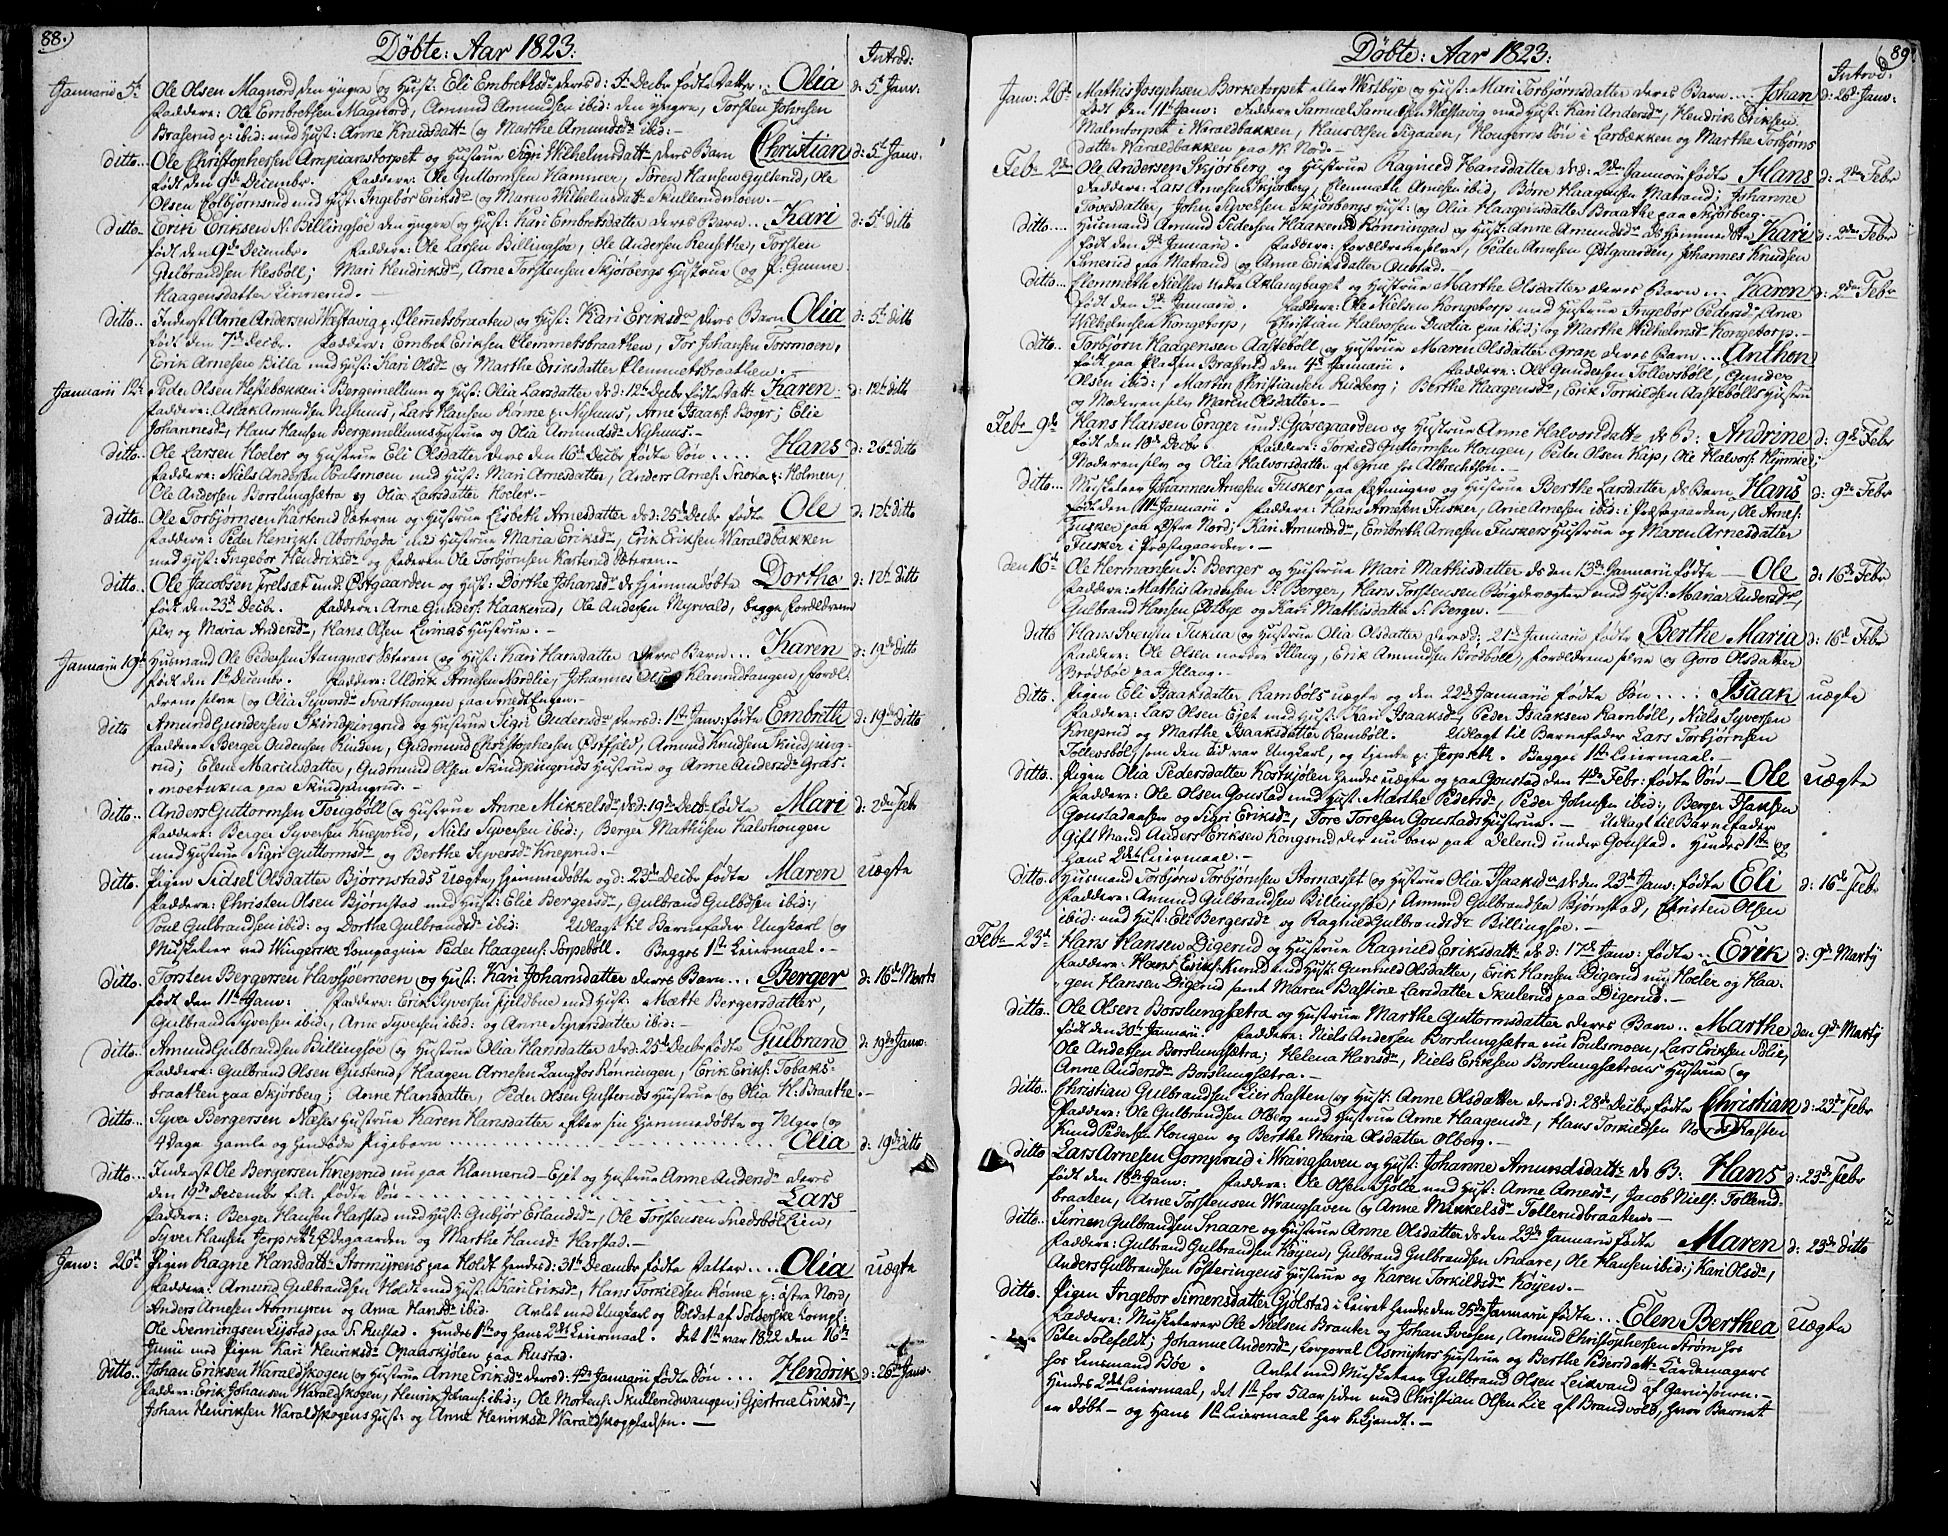 88.)
Döbte: Aar 1823:
Introd:
Januarii 5te Ole Olsen Magnord den yngre og Hust: Eli Embretsdr deres d: 5te Decbr fødte Datter: Olia d: 5te Janv:
Faddere: Ole Embretsen Magnord, Amund Amundsen ibid: den yngre, Torsten Johnsen
Braserud p: ibid: med Hust: Anne Knudsdatt: og Marthe Amundsdr ibid:-
ditto.. Ole Christophersen Ampianstorpet og Hustrue Sigri Wilhelmsdatt: deres Barn Christian d: 5te Janv:
født den 9de Decembr. Faddere: Ole Guttormsen Hammer, Søren Hansen Gylterud, Ole
Olsen Kolbjørnsrud med Hust: Ingebor Eriksdr og Maren Wilhelmsdatt: Skullerudmoen.-
ditto. Erik Eriksen N: Billingsøe den yngre og Hust: Kari Embretsdatter deres Barn.. Kari d: 5te ditto
født den 9de Decembr. Faddere: Ole Larsen Billingsøe, Ole Andersen, Torsten
Gulbrandsen Hesböll; Mari Hendriksdr, Arne Torstensen Skjørbergs Hustrue og P: Gunne
Haagensdatter Linnerud.-
ditto.. Inderst Arne Andersen Westavig p: Clemetsbraaten og Hust: Kari Eriksdr deres Barn Olia d: 5te ditto
født den 7de Decbr. Faddere: Embret Eriksen Clemmetsbraathen, Tor Johansen Torsmoen,
Erik Arnesen Billa med Hust: Kari Olsdr og Marthe Eriksdatter Clemmetsbraathen.-
Januarii 12te Peder Olsen Heftebækken i Bergemellum og Hust: Olia Larsdatter d: 12te Decbr fødte Datt: Karen d: 12te ditto
Faddere: Aslak Amundsen Nyhuus, Lars Hansen Rønne p: Nyhuus, Arne Isaaks: ; Elie
Johannesdr, Hans Hansen Bergemellums Hustrue og Olia Amundsdr Nyhuus.-
ditto.. Ole Larsen Hoeler og Hustrue Eli Olsdatter deres den 16de Decbr fødte Søn .... Hans d: 26de ditto
Faddere: Niels Andersen Poulsmoen med Hust: Mari Arnesdatter, Anders Arnes: p: Holmen,
Ole Andersen Borslungsætra og Olia Larsdatter Hoeler.-
ditto. Ole Torbjørnsen Karterud Sæteren og Hustrue Lisbeth Arnesdatter d: 25de Decbr fødte Ole d: 12te ditto
Faddere: Peder Henriks: Aborhøgda med Hustrue Maria Eriksdr, Erik Eriksen Waraldbakken
med Hust: Ingebor Hendriksdr og Faderen Ole Torbjørnsen Karterud Sæteren.-
ditto.. Ole Jacobsen Trelset und: Østgaarden og Hust: Dorthe Johansdr ds Hjemmedøbte Dorthe d: 12te ditto
født den 23de Decbr. Faddere: Arne Gunders: Haakerud, Ole Andersen Myrvald, begge Forældrene
selv og Maria Andersdr, Hans Olsen Livinas Hustrue.-
Januarii 19de Husmand Ole Pedersen Stangnæs Sæteren og Hust: Kari Hansdatter deres Barn... Karen d: 19de ditto
født den 1te Decembr. Faddere: Uldrik Arnesen Nordlie, Johannes Olsen Klanndtangen, Foræl-
drene selve og Olia Syversdr Svarthougen paa.
ditto Amund Gundersen Skindpingrud og Hustrue Sigri Andersdr deres d: 1te Janv: fødte Embreth d: 19de ditto
Faddere: Berger Audensen Rinden, Gudmund Christophersen Østfjeld, Amund Knudsen Skindping-
rud; Elene Mariusdatter, Gudmund Olsen Skindpingruds Hustrue og Anne Andersdr Gras-
moetukna paa Skindpingrud.-
ditto.. Anders Guttormsen Tougböll og Hustrue Anne Mikkelsdr d: 19de Decbr fødte Mari d: 2den Febr
Faddere: Berger Syversen Kneprud, Niels Syversen ibid:, Berger Mathisen Kalvhougen
med Hustrue Sigri Guttormsdr og Berthe Syversdr Kneprud.-
ditto. Pigen Sidsel Olsdatter Bjørnstads uægte, hjemmedøbte og d: 23de Decbr fødte Maren uægte
Faddere: Christen Olsen Bjørnstad med Hust: Elie Bergersdr, Gulbrand Gulbdsen ibid:,
Poul Gulbrandsen ibid: og Dorthe Gulbrandsdr ibid: Udlagt til Barnefader Ungkarl og
Musketeer ved Wingerske Compagnie Peder Haagens: Torpeböll. Begges 1te Leiermaal.-
ditto. Torsten Bergersen Havsjøernoen og Hust: Kari Johansdatter deres Barn... Berger d: 16de Marts
født den 11te Janv: Faddere: Erik Syversen Fjeldbue med Hust: Mette Bergersdatter,
Gulbrand Syversen ibid:, Arne Syversen ibid: og Anne Syversdatter ibid:-
ditto.. Amund Gulbrandsen Billingsøe og Hustrue Olia Hansdatter d: 25de Decbr fødte Gulbrand d: 19de Janv:
Faddere: Gulbrand Olsen Gusterud, Haagen Arnesen Langfos Rønningen, Erik Eriks: Tobaks-
braathen paa Skjørberg; Anne Hansdatter, Peder Olsen Gusteruds Hustrue og Olia H: Braathe.-
ditto. Syver Bergersen Næss Hustrue Karen Hansdatter efter sin Hjemmedøbte og Uger og
4 Dage Gamle og Pigebarn ........ Olia d: 19de ditto
ditto... Inderst Ole Bergersen Kneprud nu paa Klannerud-Ejet og Hustrue Anne Andersdr deres
den 19de Decembr f.A. fødte Søn ........ Lars
Faddere: Berger Hansen Harstad med Hust: Gubjør Erlandsdr, Ole Torstensen Snedsböl Lien,
Syver Hansen Jerpset Ødegaarden og Marthe Hansdr Harstad.-
Janv: 26de Pigen Ragne Hansdatt: Stormyrens paa Holdt hendes d: 31te Decembr fødte Datter.... Olia uægte
Faddere: Amund Gulbrandsen Holdt med Hust: Kari Eriksdr, Hans Torkildsen Rønne p: Østre Nord,
Anders Arnesen Stormyren og Anne Hansdr ibid. Avlet med Ungkarl og Soldat af Solørske Kompl:
Ole Svenningsen Lystad paa S: Rustad. Hendes 1te og hans 2det Leiermaal. Det 1te var 1822 den 16de
Junii med Pigen Kari Henriksdr Opaaskjølen paa Rustad.
ditto.. Johan Eriksen Waraldskogen og Hustrue Anne Eriksdr deres d: 4de Januarii fødte Søn ... Hendrik d: 26de Janv:
Faddere: Erik Johansen Waraldskogen, Henrik Johans: ibid:, Ole Mortens: Skullerudwangen; Gjertrue Eriksdr,
Johan Henriksen Waraldskogens Hust: og Anne Henriksdr Waraldskogpladsen.-
89.
Döbte: Aar 1823:
Introd:
Janv: 26de Mathis Josephsen Borketorpet eller Westbye og Hust: Mari Torbjørnsdatter deres Barn ... Johan d: 26de Janv:
født den 11te Janv: Faddere Samuel Samuelsen Westavig med Hust: Kari Andersdr, Hendrik Eriksen
Malentorpet i Waraldbakken, Hans Olsen Sigaaen, i Lerbækken og Marthe Torbjørns
datter Waraldbakken paa W: Nord.-
Febr 2den Ole Andersen Skjørberg og Hustrue Ragnild Hansdatter d: 2den Januarii fødte Hans d: 2den Febr
Faddere: Lars Arnesen Skjørberg, Clemmeth Arnesen ibid, Børre Haagensen Matrand; Johanne
Tovesdatter, John Syversen Skjørbergs Hust: og Olia Haagensdatter Braathe paa Skjørberg.
ditto.... Husmand Amund Pedersen Haakerud Rønningen og Hust: Anne Amundsdr ds Hjemmedøbte Kari d: 2den Febr
født den 3de Januarii. Faddere: Forældrene selve, Peder Arnesen Østgaarden, Johannes Knudsen
Linerud paa Matrand og Anne Eriksdatter Austad.
ditto... Clemmeth Nielsen Nedre Aklangberget og Hustrue Marthe Olsdatter deres Barn... Karen d: 2den Febr
født den 3de Januarii. Faddere: Ole Nielsen Kongetorp med Hustrue Ingebor Pedersdr, Arne
Wilhelmsen Kongetorp, Christian Halvorsen Duelia paa ibid; og Marthe Wilhelmsdr Kongetorp.-
ditto.. Torbjørn Haagensen Aasteböll og Hustrue Maren Olsdatter Gran deres Barn... Anthon
født paa Pladsen Braserud den 4de Januarii. Faddere: Ole Gundersen Tollevsböll, Gunder
Olsen ibid:, Martin Christiansen Rudberg; Berthe Haagensdr, Erik Torkildsen Aastebölls Hustrue
og Moderen selv Maren Olsdatter.-
Febr 9de Hans Hansen Enger und: Gjøsegaarden og Hustrue Anne Halvorsdatt: ds B: Andrine d: 9de Febr
født den 10de Decbr. Faddere: Torkild Guttormsen Hougen, Peder Olsen Kap, Ole Halvors: ;
Moderen selv og Olia Halvorsdatter.
ditto... Musketeer Johannes Arnesen Tusker paa Fæstningen og Hustrue Berthe Larsdatter ds Barn Hans d: 9de Febr
født den 11te Januarii. Faddere: Hans Arnesen Tusker, Arne Arnesen ibid: i Præstegaarden, Ole Arnes:
Tusker paa Østre Nord; Kari Amundsdr, Embreth Arnesen Tuskers Hustrue og Maren Arnesdatter
Tusker i Præstegaarden.-
den 16de Ole Hermansen S: Berger og Hustrue Mari Mathisdatter ds den 13de Januarii fødte - Ole d: 16de Febr
Faddere: Mathis Andersen S: Berger, Hans Torstensen med Hust: Maria Andersdr,
Gulbrand Hansen Østbye og Kari Mathisdatter S: Berger.
ditto Hans Svensen Tukna og Hustrue Olia Olsdatter deres d: 21de Januarii fødte Berthe Maria d: 16de Febr
Faddere: Ole Olsen nordre Illaug, Erik Amundsen Brødböll, Forældrene selve og Goro Olsdatter
Brødböe paa Illaug.-
ditto. Pigen Eli Isaaksdatter Ramböls uægte og den 22de Januarii fødte Søn....: Isaak uægte
Faddere: Lars Olsen Ejet med Hust: Kari Isaaksdr, Peder Isaaksen Ramböll, Niels Syversen
Kneprud og Marthe Isaaksdatter Ramböll. Udlagt til Barnefader Lars Torbjørnsen
Tollevsböl, som den Tid var Ungkarl, og tjente p: Jerpseth. Begges 1te Leiermaal.-
ditto. Pigen Olia Pedersdatter Korskjølen hendes uægte og paa Goustad den 4de Febr: fødte Søn - Ole uægte
Faddere: Ole Olsen Goustad med Hust: Marthe Pedersdr, Peder Johnsen ibid:, Berger Isaksen
Goustadaasen og Sigri Eriksdr, Tore Toresen Goustads Hustrue.- Udlagt til Barnefader
Gift Mand Anders Eriksen Kongsrud der nu boer paa Delerud under Goustad. Hendes 1te og
hans 2det Leiermaal.-
ditto.. Husmand Torbjørn Torbjørnsen Stornæsset og Hustrue Olia Isaaksdr ds den 23de Janv: fødte Eli d: 16de Febr
Faddere: Amund Gulbrandsen Billingsøe, Amund Gulbrandsen Bjørnstad, Christen Olsen
ibid: med Hust: Eli Bergersdr og Ragnild Gulbrandsdr Billingsøe.-
Febr 23de Hans Hansen Digerud og Hustrue Ragnild Eriksdatt: ds d: 17de Janv: fødte.. Erik d: 9de Martij
Faddere: Hans Eriks: Krud med Hust: Gunnild Olsdatter, Erik Hansen Digerud nu Hoeler og Haa-
gen Hansen Digerud samt Maren Bastine Larsdatter Skulerud paa Digerud.-
ditto. Ole Olsen Borslungsætra og Hustrue Marthe Guttormsdatter deres Barn.. Marthe den 9de Martij
født den 30te Januarii Faddere: Niels Andersen Borslungsætra nu Poulsmoen, Lars Eriksen Folie,
Ole Andersen Borslungsætra; Helena Hansdr, Niels Eriksen Borslungsætrens Hustrue og
Anne Andersdr Borslungsætra.-
ditto. Christian Gulbrandsen Lier Kasten og Hust: Anne Olsdatter deres d: 28de Decbr fødte Christian d: 23de Febr
Faddere: Ole Gulbrandsen Olberg med Hustrue Anne Haagensdr, Hans Torkildsen Kasten
Knud Pedersen Hougen og Berthe Maria Olsdatter Olberg.-
ditto Lars Arnesen Gomprud i Wranghaven og Hust: Johanne Amundsdatt: ds B: Hans d: 23de Febr
født den 18de Janv: Faddere: Ole Olsen Fjølle med Hust: Anne Arnesdr, Jacob Niels: Tollerud-
braaten, Arne Torstensen Wranghaven og Anne Mikkelsdr Tollerudbraaten.-
ditto.. Simen Gulbrandsen Snaare og Hustrue Anne Olsdatter ds den 23de Januarii fødte Maren d: 23de ditto
Faddere: Gulbrand Gulbrandsen Køyen, Gulbrand Gulbrandsen Snaare, Ole Hansen ibid:; Kari Olsdr,
Anders Gulbrandsen Fosteringens Hustrue og Karen Torkildsdr Køyen.-
ditto. Pigen Ingebor Simensdatter Gjølstad i Leiret hendes den 25de Januarii fødte... Elen Berthea uægte
Faddere: Musketerer Ole Nielsen Branter og Johan Ivessen, Amund Christophersen Strøm hos
Peder Tolefeldt; Johanne Andersdr, Corporal Aasmyhrs Hustrue og Berthe Pedersdatt: Tandemagers
hos Lensmand Böe. Avlet med Musketeer Gulbrand Olsen Leikvand af Garnisonen.-
Hendes 2det Leiermaal, det 1te for 5 Aar siden med Christian Olsen Lie af Brandvold, hvor Barnet
er døbt - og Hans 1te Leiermaal her bekjendt.-